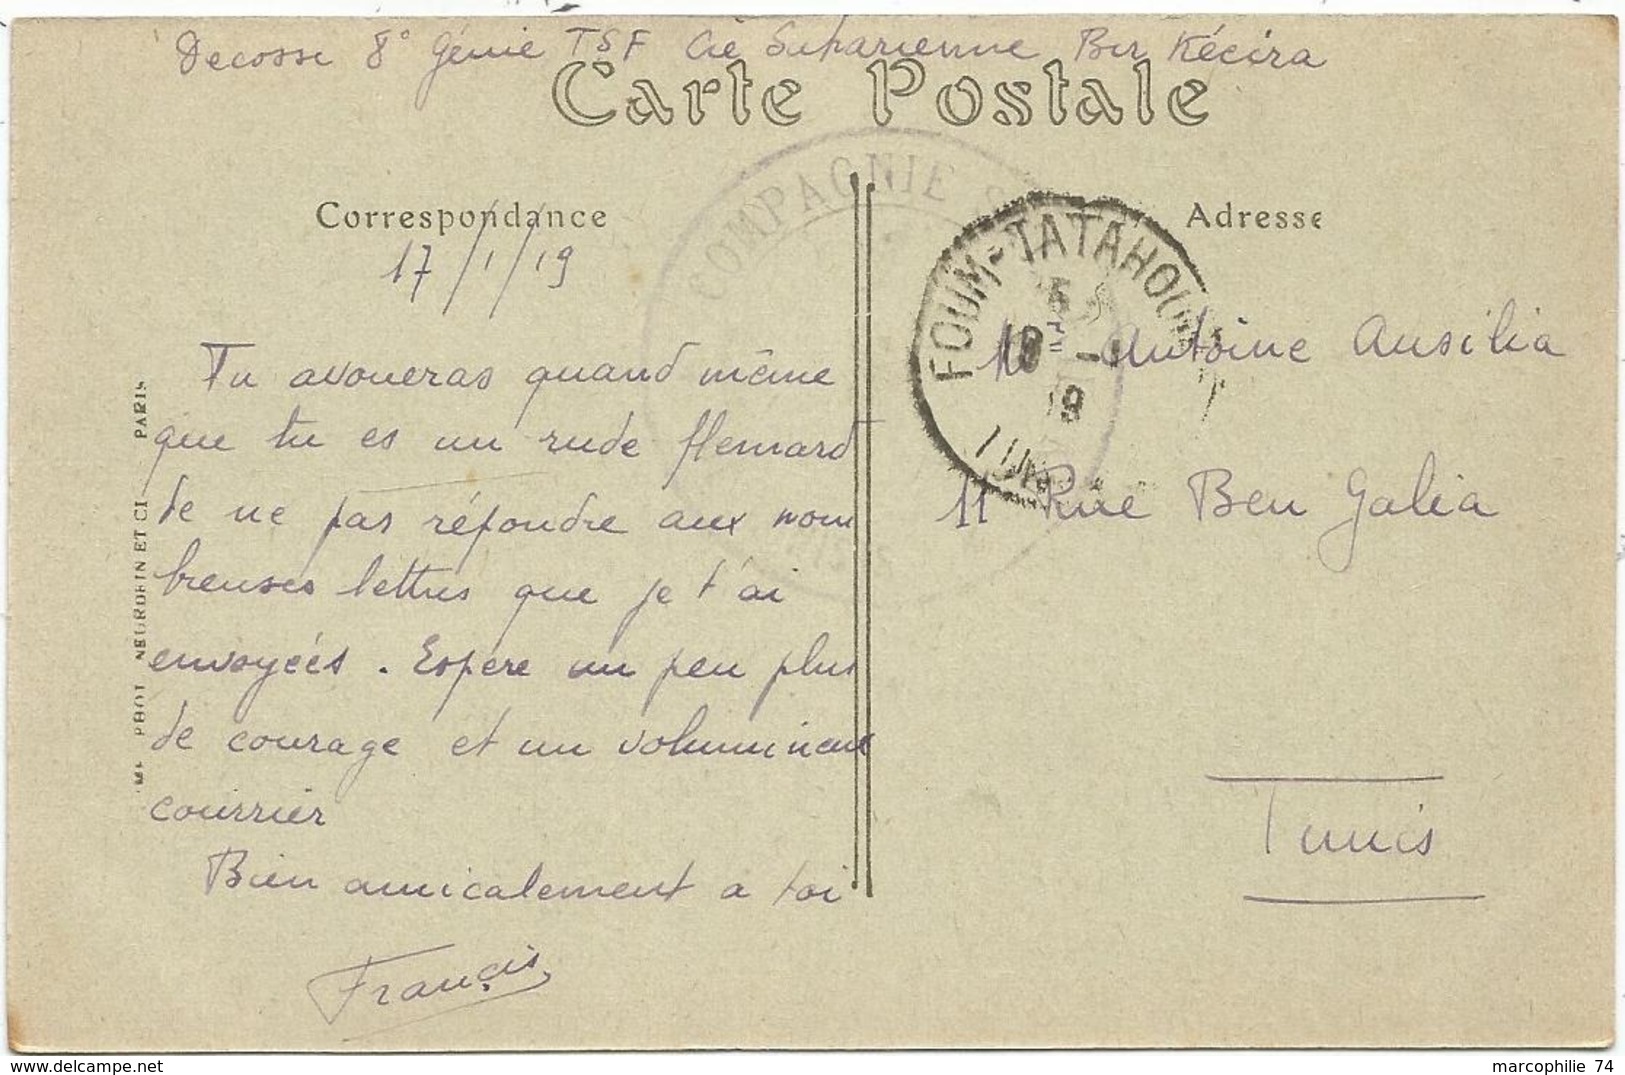 Decosse 8° Génie TSF Cie Saharienne Bir Kécira
Carte Postale
COMPAGNIE S
Correspondance
Adresse
17/1/19
FOUM-TATAHOUINE
5
18 -1
19
TUNISIE
M Antoine Ausilia
11 Rue Ben Galia
Tunis
Tu avoueras quand même
que tu es un rude flemard
de ne pas répondre aux nom
breuses lettres que je t'ai
envoyées. Espère un peu plus
de courage et un volumineux
courrier
Bien amicalement a toi
Francis
IMP. PHOT. NEURDEIN ET CIE PARIS
marcophilie 74